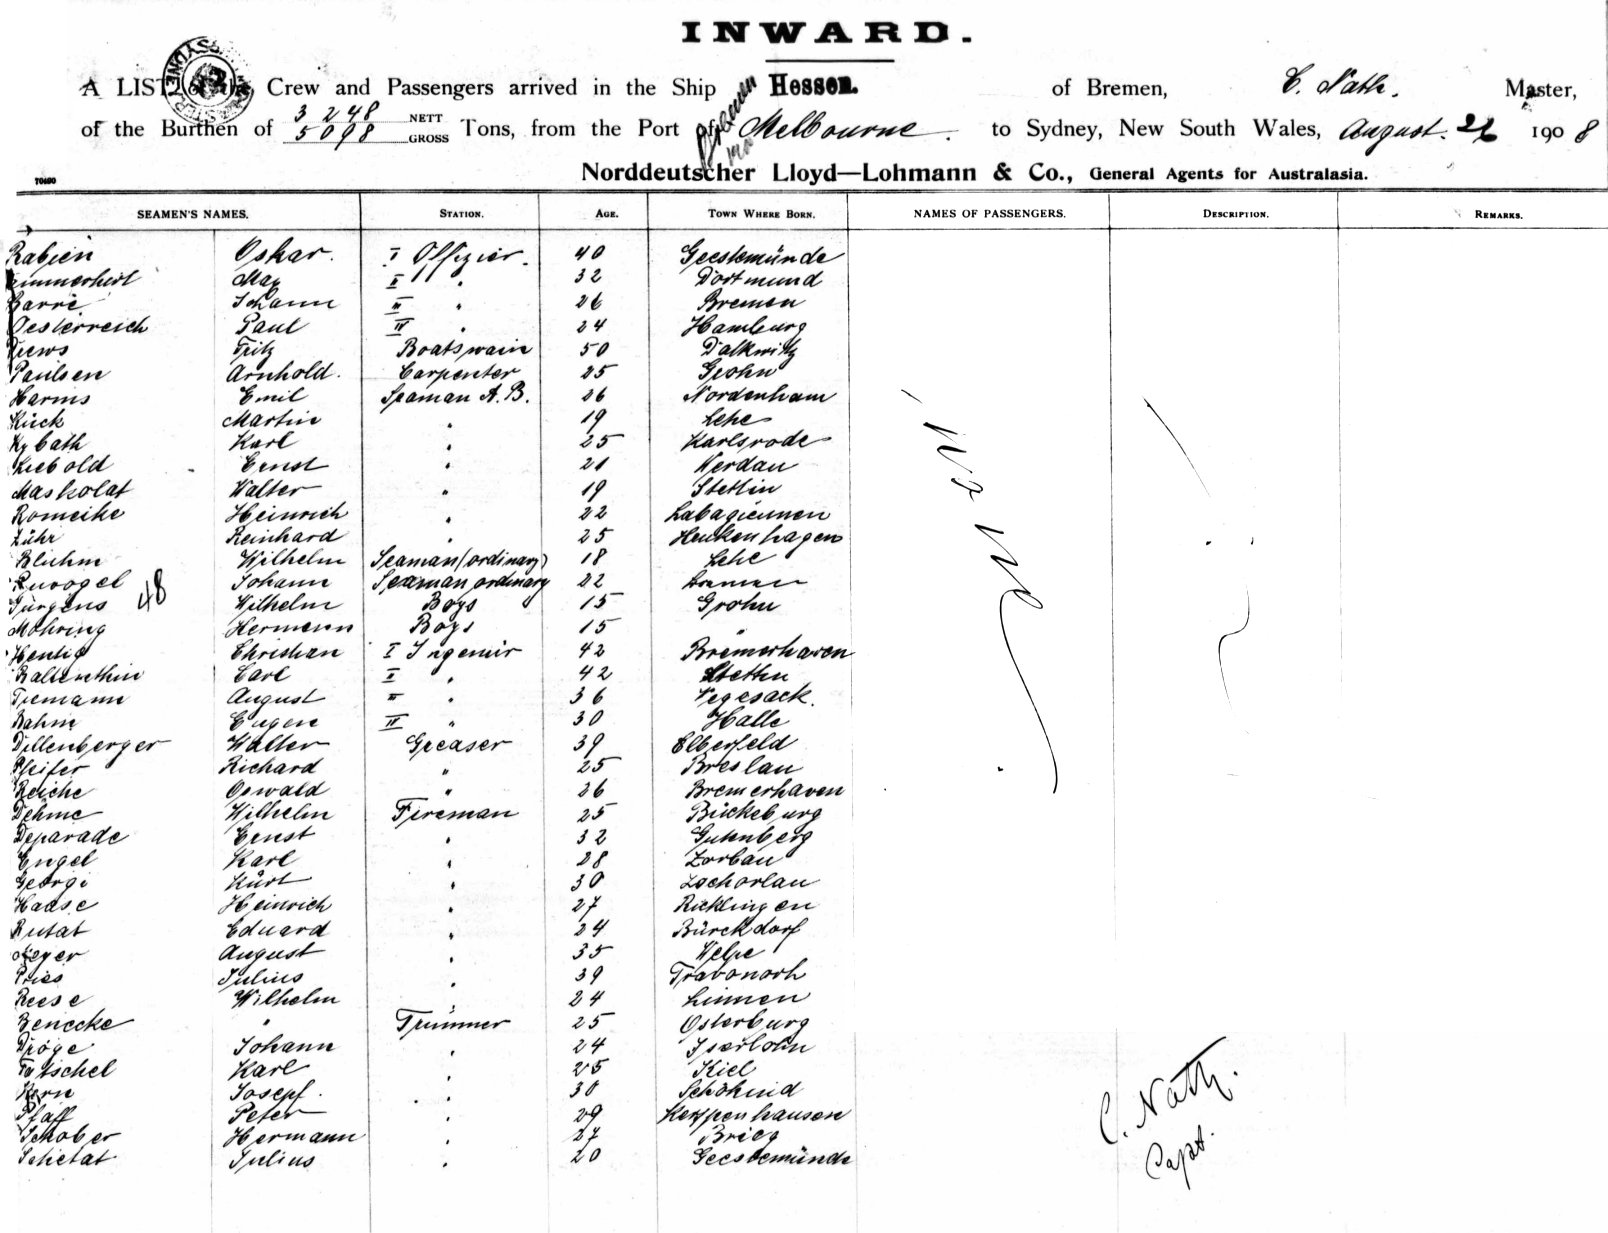 INWARD.
A LIST of the Crew and Passengers arrived in the Ship Hessen. of Bremen, C. Nath. Master,
of the Burthen of 3248 NETT 5098 GROSS Tons, from the Port Bremen via Melbourne. to Sydney, New South Wales, August. 26 1908
Norddeutscher Lloyd—Lohmann & Co., General Agents for Australasia.
SEAMEN'S NAMES. STATION. AGE. TOWN WHERE BORN. NAMES OF PASSENGERS. DESCRIPTION. REMARKS.
Rabien Oskar. I Offizier. 40 Geestemünde
Max II " 32 Dortmund
Barre Johann III " 26 Bremen
Oesterreich Paul IV " 24 Hamburg
Fritz Boatswain 50 Dalkwitz
Paulsen Arnhold. Carpenter 25 Grohn
Harms Emil Seaman A.B. 26 Nordenham
Kück Martin " 19 Lehe
Kybath Karl " 25 Karlsrode
Liebold Ernst " 21 Werdau
Maskolat Walter " 19 Stettin
Romeike Heinrich " 22 Labagienen
Lühr Reinhard " 25 Henkenhagen
Bluhm Wilhelm Seaman (ordinary) 18 Lehe
Ruvogel Johann Seaman ordinary 22 Bremen
Jürgens Wilhelm Boys 15 Grohn
48
Möhring Hermann Boys 15 "
Hentig Christian I Ingenieur 42 Bremerhaven
Balzerethin Carl II " 42 Stettin
Tiemann August III " 36 Vegesack.
Bahm Eugen IV " 30 Halle
Dillenberger Walter Greaser 39 Elberfeld
Pfeifer Richard " 25 Breslau
Reiche Oswald " 26 Bremerhaven
Dehme Wilhelm Fireman 25 Bückeburg
Deparade Ernst " 32 Gutenberg
Engel Karl " 28 Zorbau
Georgi Kurt " 30 Zschorlau
Haase Heinrich " 27 Ricklingen
Rutat Eduard " 24 Bürckdorf
Meyer August " 35 Welpe
Pries Julius " 39
Reese Wilhelm " 24 Linnen
Benecke " Trimmer 25 Osterburg
Dröge Johann " 24 Iserlohn
Tätschel Karl " 25 Kiel
Kern Josepf. " 30
Pfaff Peter " 29 Kerspenhausen
Schober Hermann " 27 Brieg
Schetat Julius " 20 Geestemünde
C. Nath.
Capt.